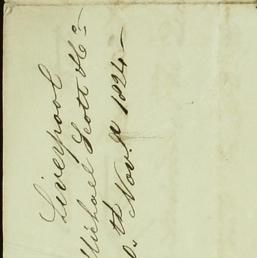 Liverpool
Michael Scott & Co
th Nov. 1824